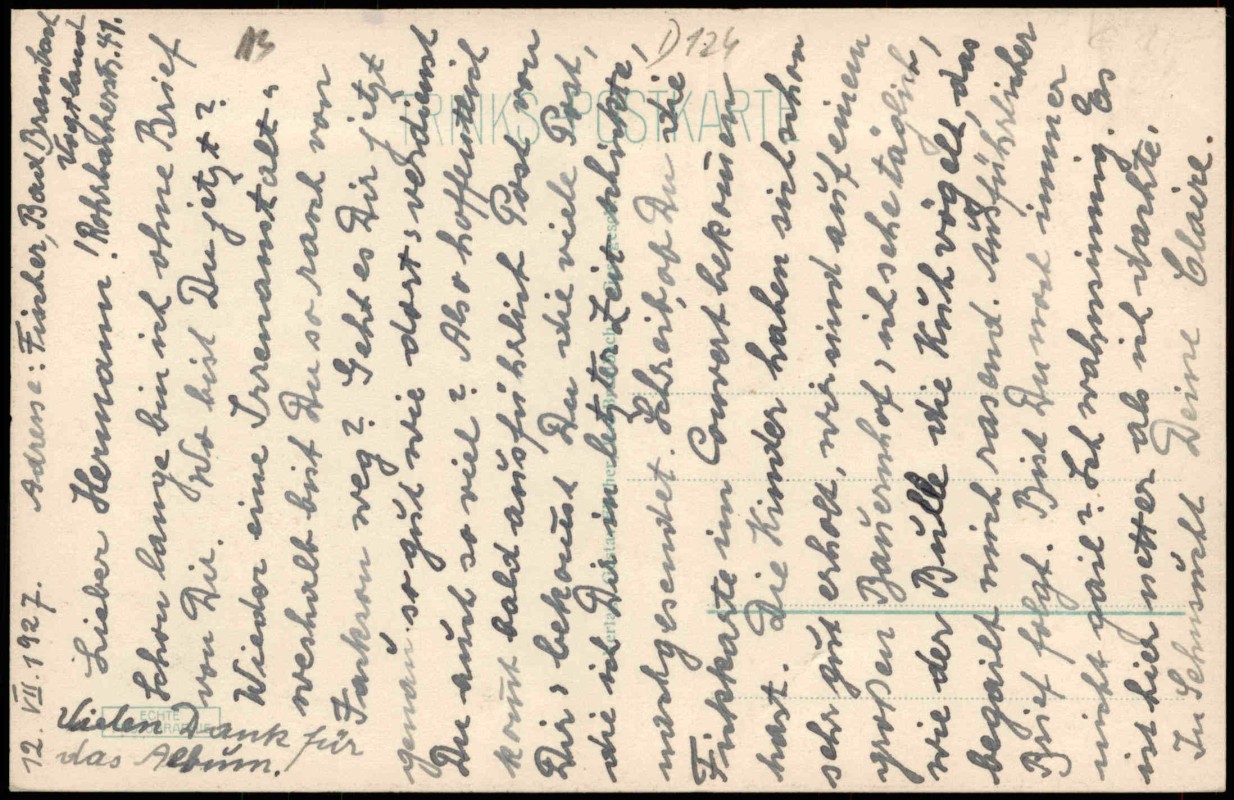 12. VII. 1927. Adresse: Fischer, Bad Brambach
Vogtland
Rohrbacherstr. 49.
Lieber Hermann!
Schon lange bin ich ohne Brief
von Dir. Wo bist Du jetzt?
Wieder eine Irrenanstalt.
weshalb bist Du so rasch von
weg? Geht es Dir jetzt
genau so gut wie dort, verdienst
Du auch so viel? Also hoffentlich
kom̄t bald ausführlich Post von
Dir, bekom̄st Du die viele Post,
die ich Dir in letzter Zeit schickte,
nachgesendet. Schreit, ob Du die
Fickkarte im Couvert bekom̄en
hast. Die Kinder haben sich schon
sehr gut erholt, wir sind auf einem
großen Bauernhof, ich sehe täglich,
wie der Bulle die Kuh vögelt, das
begailt mich rasend. Ausführlicher
Brief folgt. Bist Du noch immer
nicht gail? Ich wahnsinnig. Es
ist hier netter als ich dachte.
In Sehnsucht Deine Claire.
Vielen Dank für
das Album.
D 124
TRINKS-POSTKARTE
ECHTE